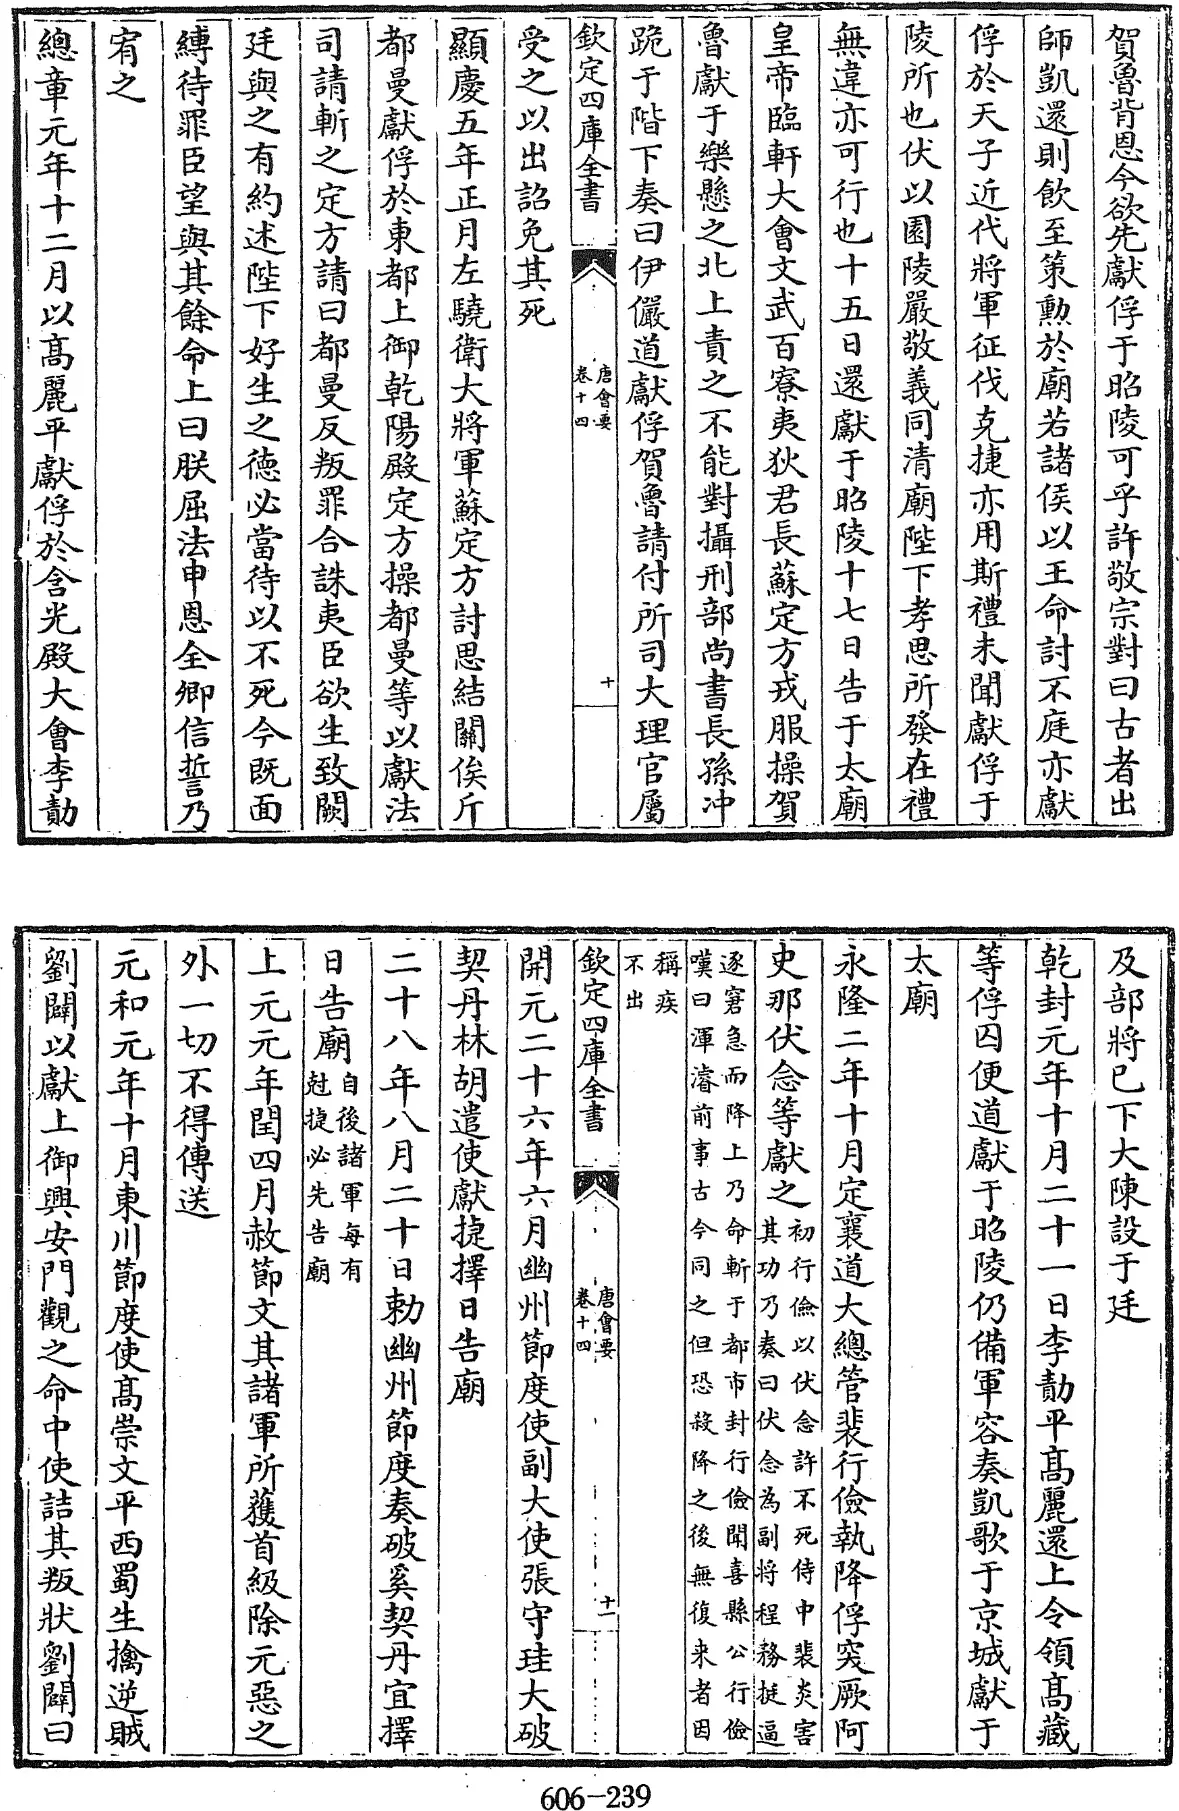 賀魯背恩今欲先獻俘于昭陵可乎許敬宗對曰古者出
師凱還則飲至策勲於廟若諸侯以王命討不庭亦獻
俘於天子近代將軍征伐克捷亦用斯禮未聞獻俘于
陵所也伏以園陵嚴敬義同清廟陛下孝思所發在禮
無違亦可行也十五日還獻于昭陵十七日告于太廟
皇帝臨軒大會文武百寮夷狄君長蘇定方戎服操賀
魯獻于樂懸之北上責之不能對攝刑部尚書長孫冲
跪于階下奏曰伊儼道獻俘賀魯請付所司大理官屬
欽定四庫全書
唐會要
卷十四
十
受之以出詔免其死
顯慶五年正月左驍衛大將軍蘇定方討思結闗俟斤
都曼獻俘於東都上御乾陽殿定方操都曼等以獻法
司請斬之定方請曰都曼反叛罪合誅夷臣欲生致闕
廷與之有約述陛下好生之德必當待以不死今既面
縛待罪臣望與其餘命上曰朕屈法申恩全卿信誓乃
宥之
總章元年十二月以髙麗平獻俘於含光殿大會李勣
及部將已下大陳設于廷
乾封元年十月二十一日李勣平髙麗還上令領髙藏
等俘囚便道獻于昭陵仍備軍容奏凱歌于京城獻于
太廟
永隆二年十月定襄道大總管裴行儉執降俘突厥阿
史那伏念等獻之初行儉以伏念許不死侍中裴炎害
其功乃奏曰伏念為副將程務挺逼
逐窘急而降上乃命斬于都市封行儉聞喜縣公行儉
嘆曰渾濬前事古今同之但恐殺降之後無復来者因
稱疾
不出
欽定四庫全書
唐會要
卷十四
十一
開元二十六年六月幽州節度使副大使張守珪大破
契丹林胡遣使獻捷擇日告廟
二十八年八月二十日勅幽州節度奏破奚契丹宜擇
日告廟自後諸軍每有
尅捷必先告廟
上元元年閏四月赦節文其諸軍所獲首級除元惡之
外一切不得傳送
元和元年十月東川節度使髙崇文平西蜀生擒逆賊
劉闢以獻上御興安門觀之命中使詰其叛狀劉闢曰
606-239